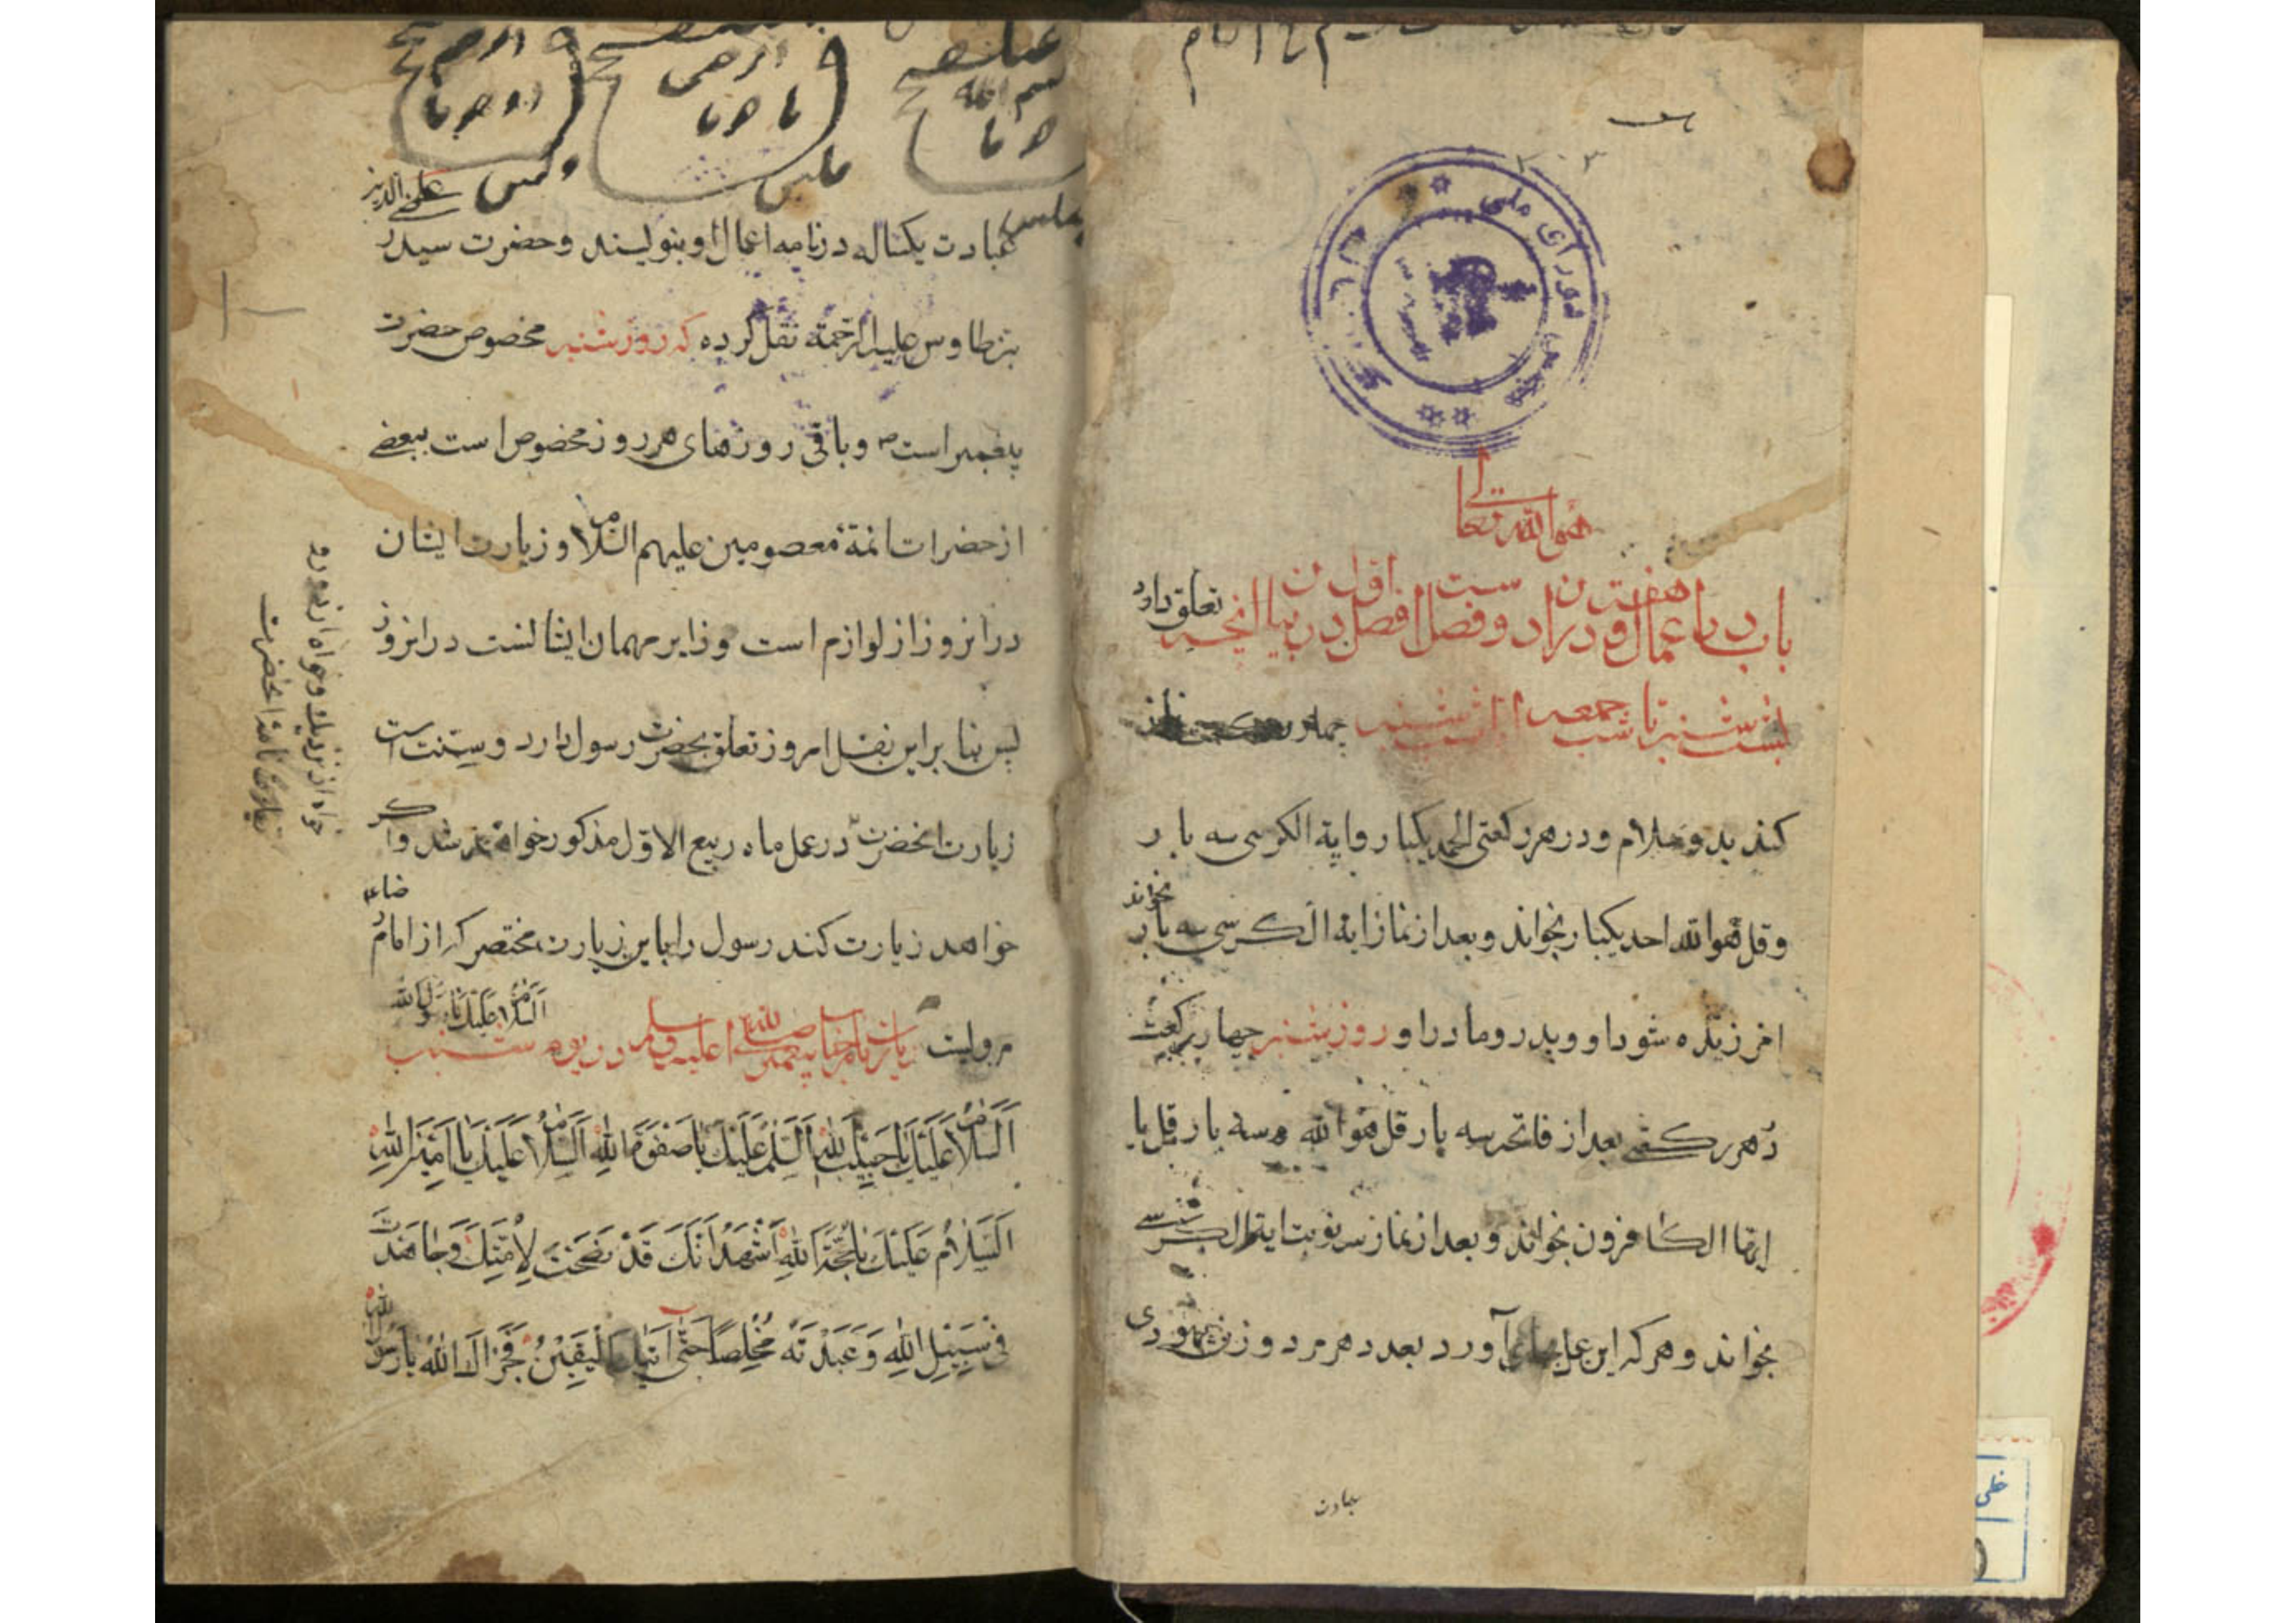 هو الله تعالی
باب در اعمال هفته و در آن دو فصل است فصل اول در بیان آنچه تعلق دارد
بشب شنبه تا شب جمعه اما شب شنبه چهار نماز
کند بدو سلام و در هر رکعتی الحمد یکبار و ایة الکرسی سه بار
و قل هو الله احد یکبار بخواند و بعد از نماز ایة الکرسی سه بار بخواند
امرزیده شود او و پدر و مادر او روز شنبه چهار رکعت
در هر رکعتی بعد از فاتحه سه بار قل هو الله و سه بار قل یا
ایها الکافرون بخواند و بعد از نماز سه نوبت ایة الکرسی
بخواند و هر که این عمل بجای آورد بعدد هر مرد و زن یهودی
عبادت
عبادت یکساله در نامه اعمال او بنویسند و حضرت سید رضی الدین علی
بن طاوس علیه الرحمة نقل کرده که روز شنبه مخصوص حضرت
پیغمبر است ص و باقی روزهای هر روز مخصوص است ببعضی
از حضرات ائمة معصومین علیهم السلام و زیارت ایشان
در ان روز از لوازم است و زایر مهمان ایشانست در انروز
پس بنا براین نقل امروز تعلق بحضرت رسول دارد و سنت است
زیارت انحضرت در عمل ماه ربیع الاول مذکور خواهد شد و اگر
خواهد زیارت کند رسول را باین زیارت مختصر که از امام رضا ع
مرویست زیارت حضرت پیغمبر صلی الله علیه و سلم در روز شنبه السلام علیک یا رسول الله
اَلسَّلامُ عَلَیْکَ یا حَبیبَ اللهِ اَلسَّلامُ عَلَیْکَ یا صَفْوَةَ اللهِ اَلسَّلامُ عَلَیْکَ یا اَمینَ اللهِ
اَلسَّلامُ عَلَیْکَ یا حُجَّةَ اللهِ اَشْهَدُ اَنَّکَ قَدْ نَصَحْتَ لِاُمَّتِکَ وَجاهَدْتَ
فی سَبیلِ اللهِ وَعَبَدْتَهُ مُخْلِصاً حَتّی اَتیکَ الْیَقینُ فَجَزاکَ اللهُ یا رَسُولَ اللهِ
خواه از نزدیک و خواه از دور
زیارت انحضرت